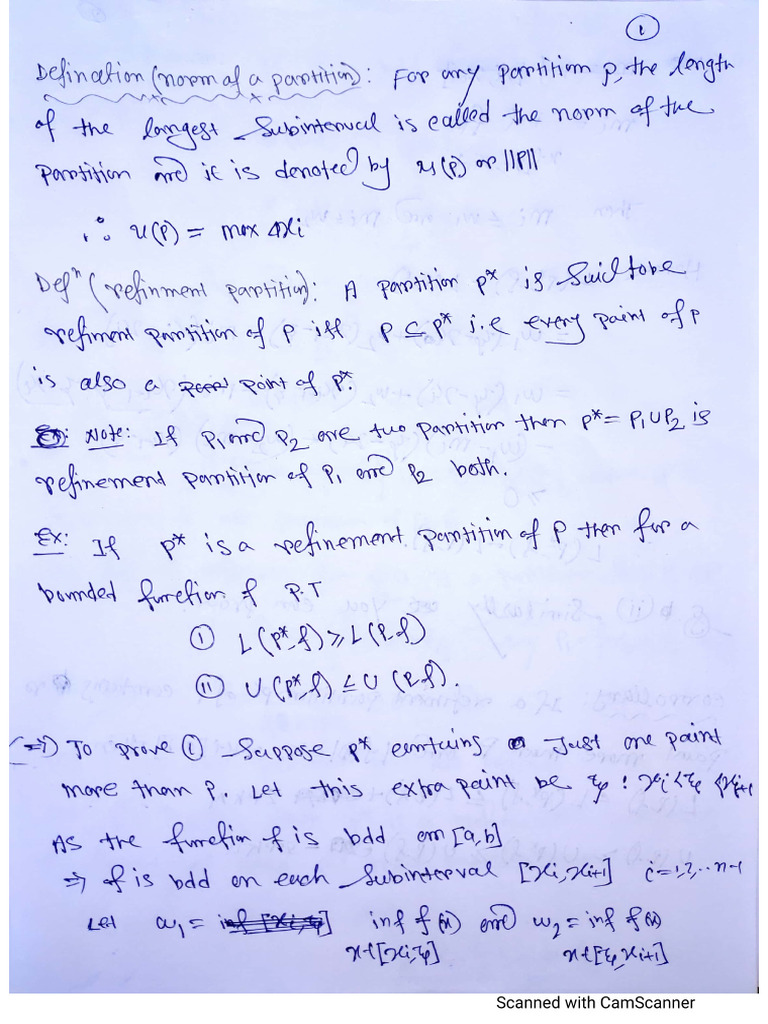 ①
Defination (norm of a partition): For any partition P, the length
of the largest subinterval is called the norm of the
partition and it is denoted by μ(P) or ||P||
∴ μ(P) = max Δxi
Defⁿ (refinment partition): A partition P* is said to be
refiment partition of P iff P ⊆ P* i.e every point of P
is also a point of P*
Note: If P₁ and P₂ are two partition then P* = P₁∪P₂ is
refinement partition of P₁ and P₂ both.
Ex: If P* is a refinement partition of P then for a
bounded function f P.T
① L(P*,f) ≥ L(P,f)
⑪ U(P*,f) ≤ U(P,f).
(⇒) To prove ① Suppose P* contains just one point
more than P. Let this extra point be ξ : xi < ξ < xi+1
As the function f is bdd on [a,b]
⇒ f is bdd on each subinterval [xi, xi+1] i=1,2,..n-1
Let w₁ = inf f(x) and w₂ = inf f(x)
x∈[xi,ξ] x∈[ξ,xi+1]
Scanned with CamScanner